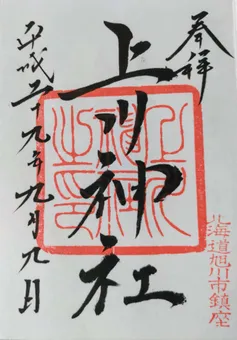 奉拝
上川神社
平成二十九年九月九日
北海道旭川市鎮座